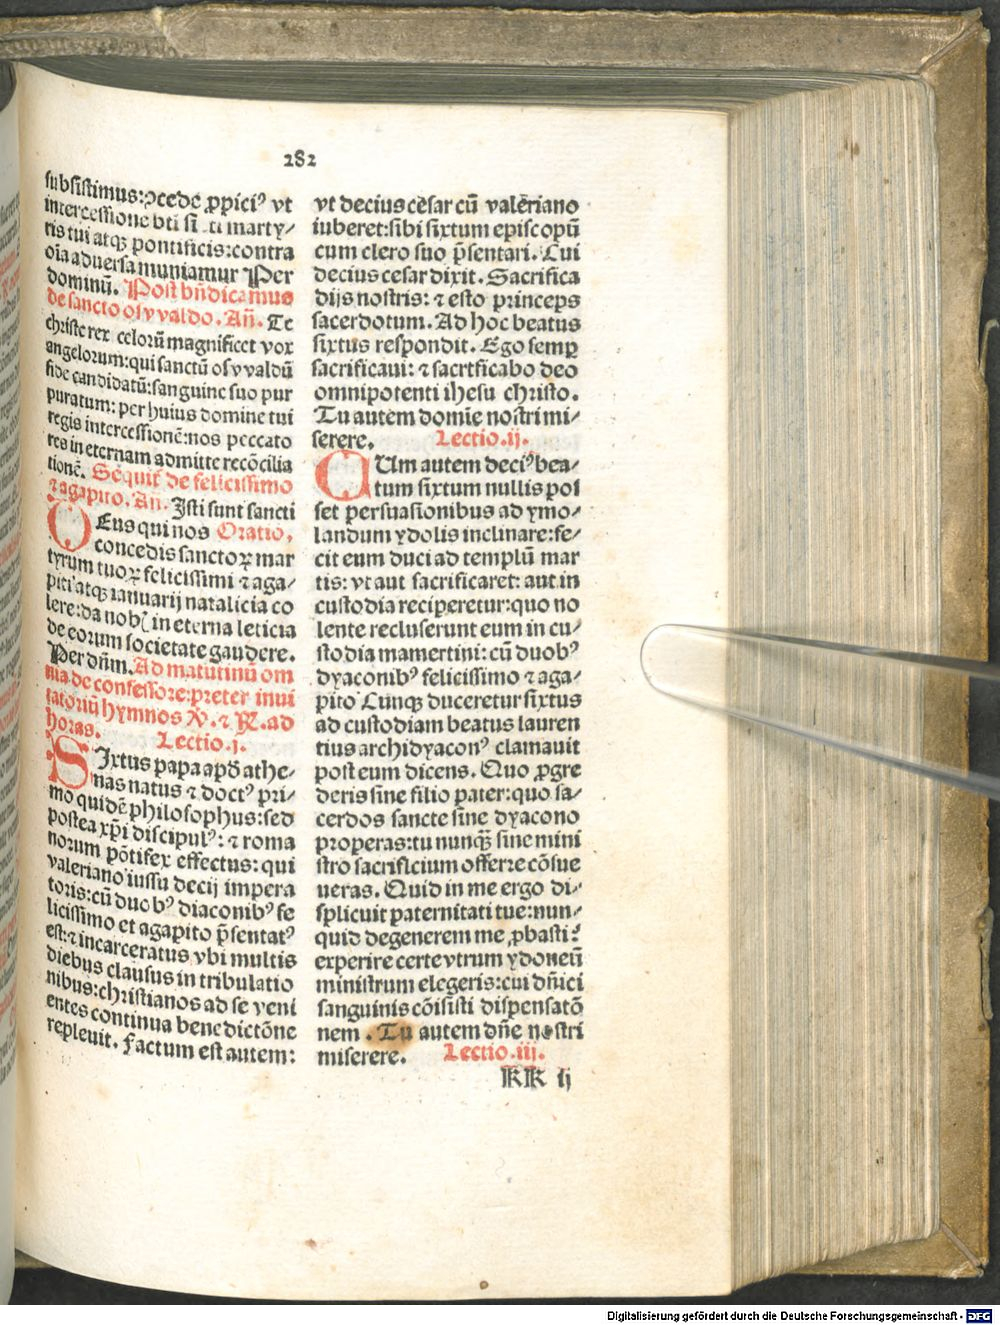 282
subsistimus:ꝯcede ꝓpiciꝰ vt
intercessione bti si ti marty⸗
ris tui atqꝫ pontificis:contra
oīa aduersa muniamur Per
dominū. Post bn̄dicamus
de sancto osvvaldo. An̄. Te
christe rex celorū magnificet vox
angelorum:qui sanctū osvvaldū
fide candidatū:sanguine suo pur
puratum: per huius domine tui
regis intercessionē:nos peccato
res in eternam admitte recōcilia
tionē. Seq̄uit̄ de felicissimo
⁊ agapito. An. Isti sunt sancti
DEus qui nos Oratio.
concedis sanctoꝝ mar
tyrum tuoꝝ felicissimi ⁊ aga⸗
piti atqꝫ ianuarij natalicia co
lere:da nob̄ in eterna leticia
de eorum societate gaudere.
Per dn̄m. Ad matutinū om
nia de confessore:preter inui
tatoriū hymnos ꝟ. ⁊ ℞. ad
horas. Lectio .j.
SIxtus papa apd̄ athe⸗
nas natus ⁊ doctꝰ pri⸗
mo quidē philosophus:sed
postea xp̄i discipulꝰ: ⁊ roma
norum pōtifex effectus: qui
valeriano iussu decij impera
toris:cū duobꝰ diaconibꝰ fe
licissimo et agapito p̄sentatꝰ
est:⁊ incarceratus vbi multis
diebus clausus in tribulatio
nibus:christianos ad se veni
entes continua benedictōne
repleuit. Factum est autem:
vt decius cesar cū valeriano
iuberet:sibi sixtum episcopū
cum clero suo p̄sentari. Cui
decius cesar dixit. Sacrifica
dijs nostris: ⁊ esto princeps
sacerdotum. Ad hoc beatus
sixtus respondit. Ego semꝑ
sacrificaui: ⁊ sacrtficabo deo
omnipotenti ihesu christo.
Tu autem domīe nostri mi⸗
serere. Lectio .ij.
CUm autem deciꝰ bea⸗
tum sixtum nullis pos
set persuasionibus ad ymo⸗
landum ydolis inclinare:fe⸗
cit eum duci ad templū mar
tis: vt aut sacrificaret: aut in
custodia reciperetur:quo no
lente recluserunt eum in cu⸗
stodia mamertini: cū duobꝰ
dyaconibꝰ felicissimo ⁊ aga⸗
pito Cunqꝫ duceretur sixtus
ad custodiam beatus lauren
tius archidyaconꝰ clamauit
post eum dicens. Quo ꝓgre
deris sine filio pater:quo sa⸗
cerdos sancte sine dyacono
properas:tu nunqꝫ̄ sine mini
stro sacrificium offerre cōsue
ueras. Quid in me ergo di⸗
splicuit paternitati tue:nun⸗
quid degenerem me ꝓbasti?
experire certe vtrum ydoneū
ministrum elegeris:cui dn̄ici
sanguinis cōisisti dispensatō
nem . Tu autem dn̄e nostri
miserere. Lectio .iij.
KK ij
Digitalisierung gefördert durch die Deutsche Forschungsgemeinschaft - DFG